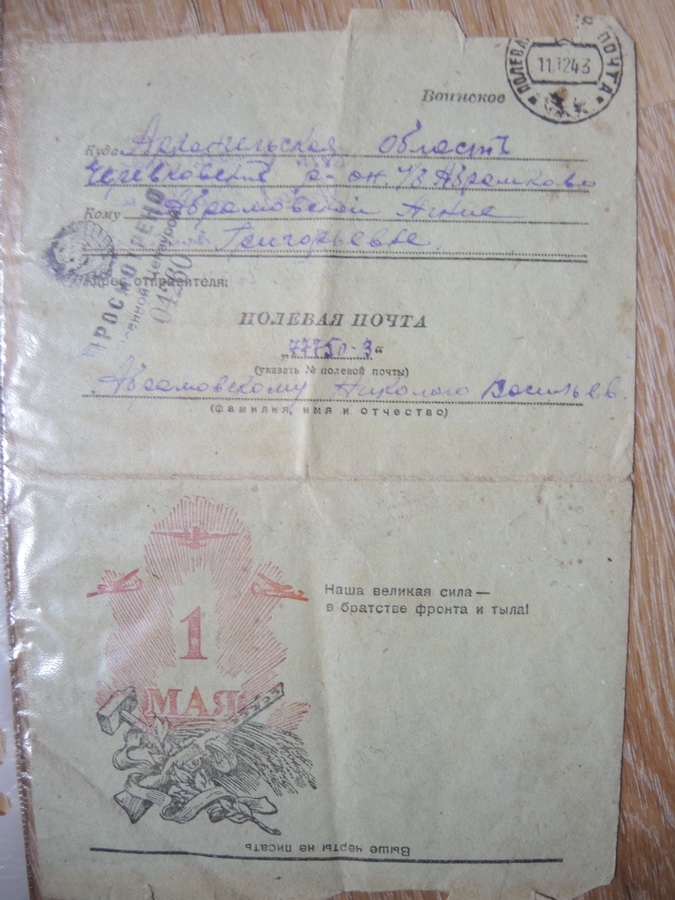 ПОЛЕВАЯ ПОЧТА
11.12.43
Воинское
Куда Архангельская область
Черевковский р-он. ч/з Абрамково
Кому Абрамовской Агние
Григорьевне.
ПРОСМОТРЕНО
Военной Цензурой
Адрес отправителя:
ПОЛЕВАЯ ПОЧТА
„77750-З“
(указать № полевой почты)
Абрамовскому Николаю Васильев.
(фамилия, имя и отчество)
Наша великая сила —
в братстве фронта и тыла!
1
МАЯ
Выше черты не писать